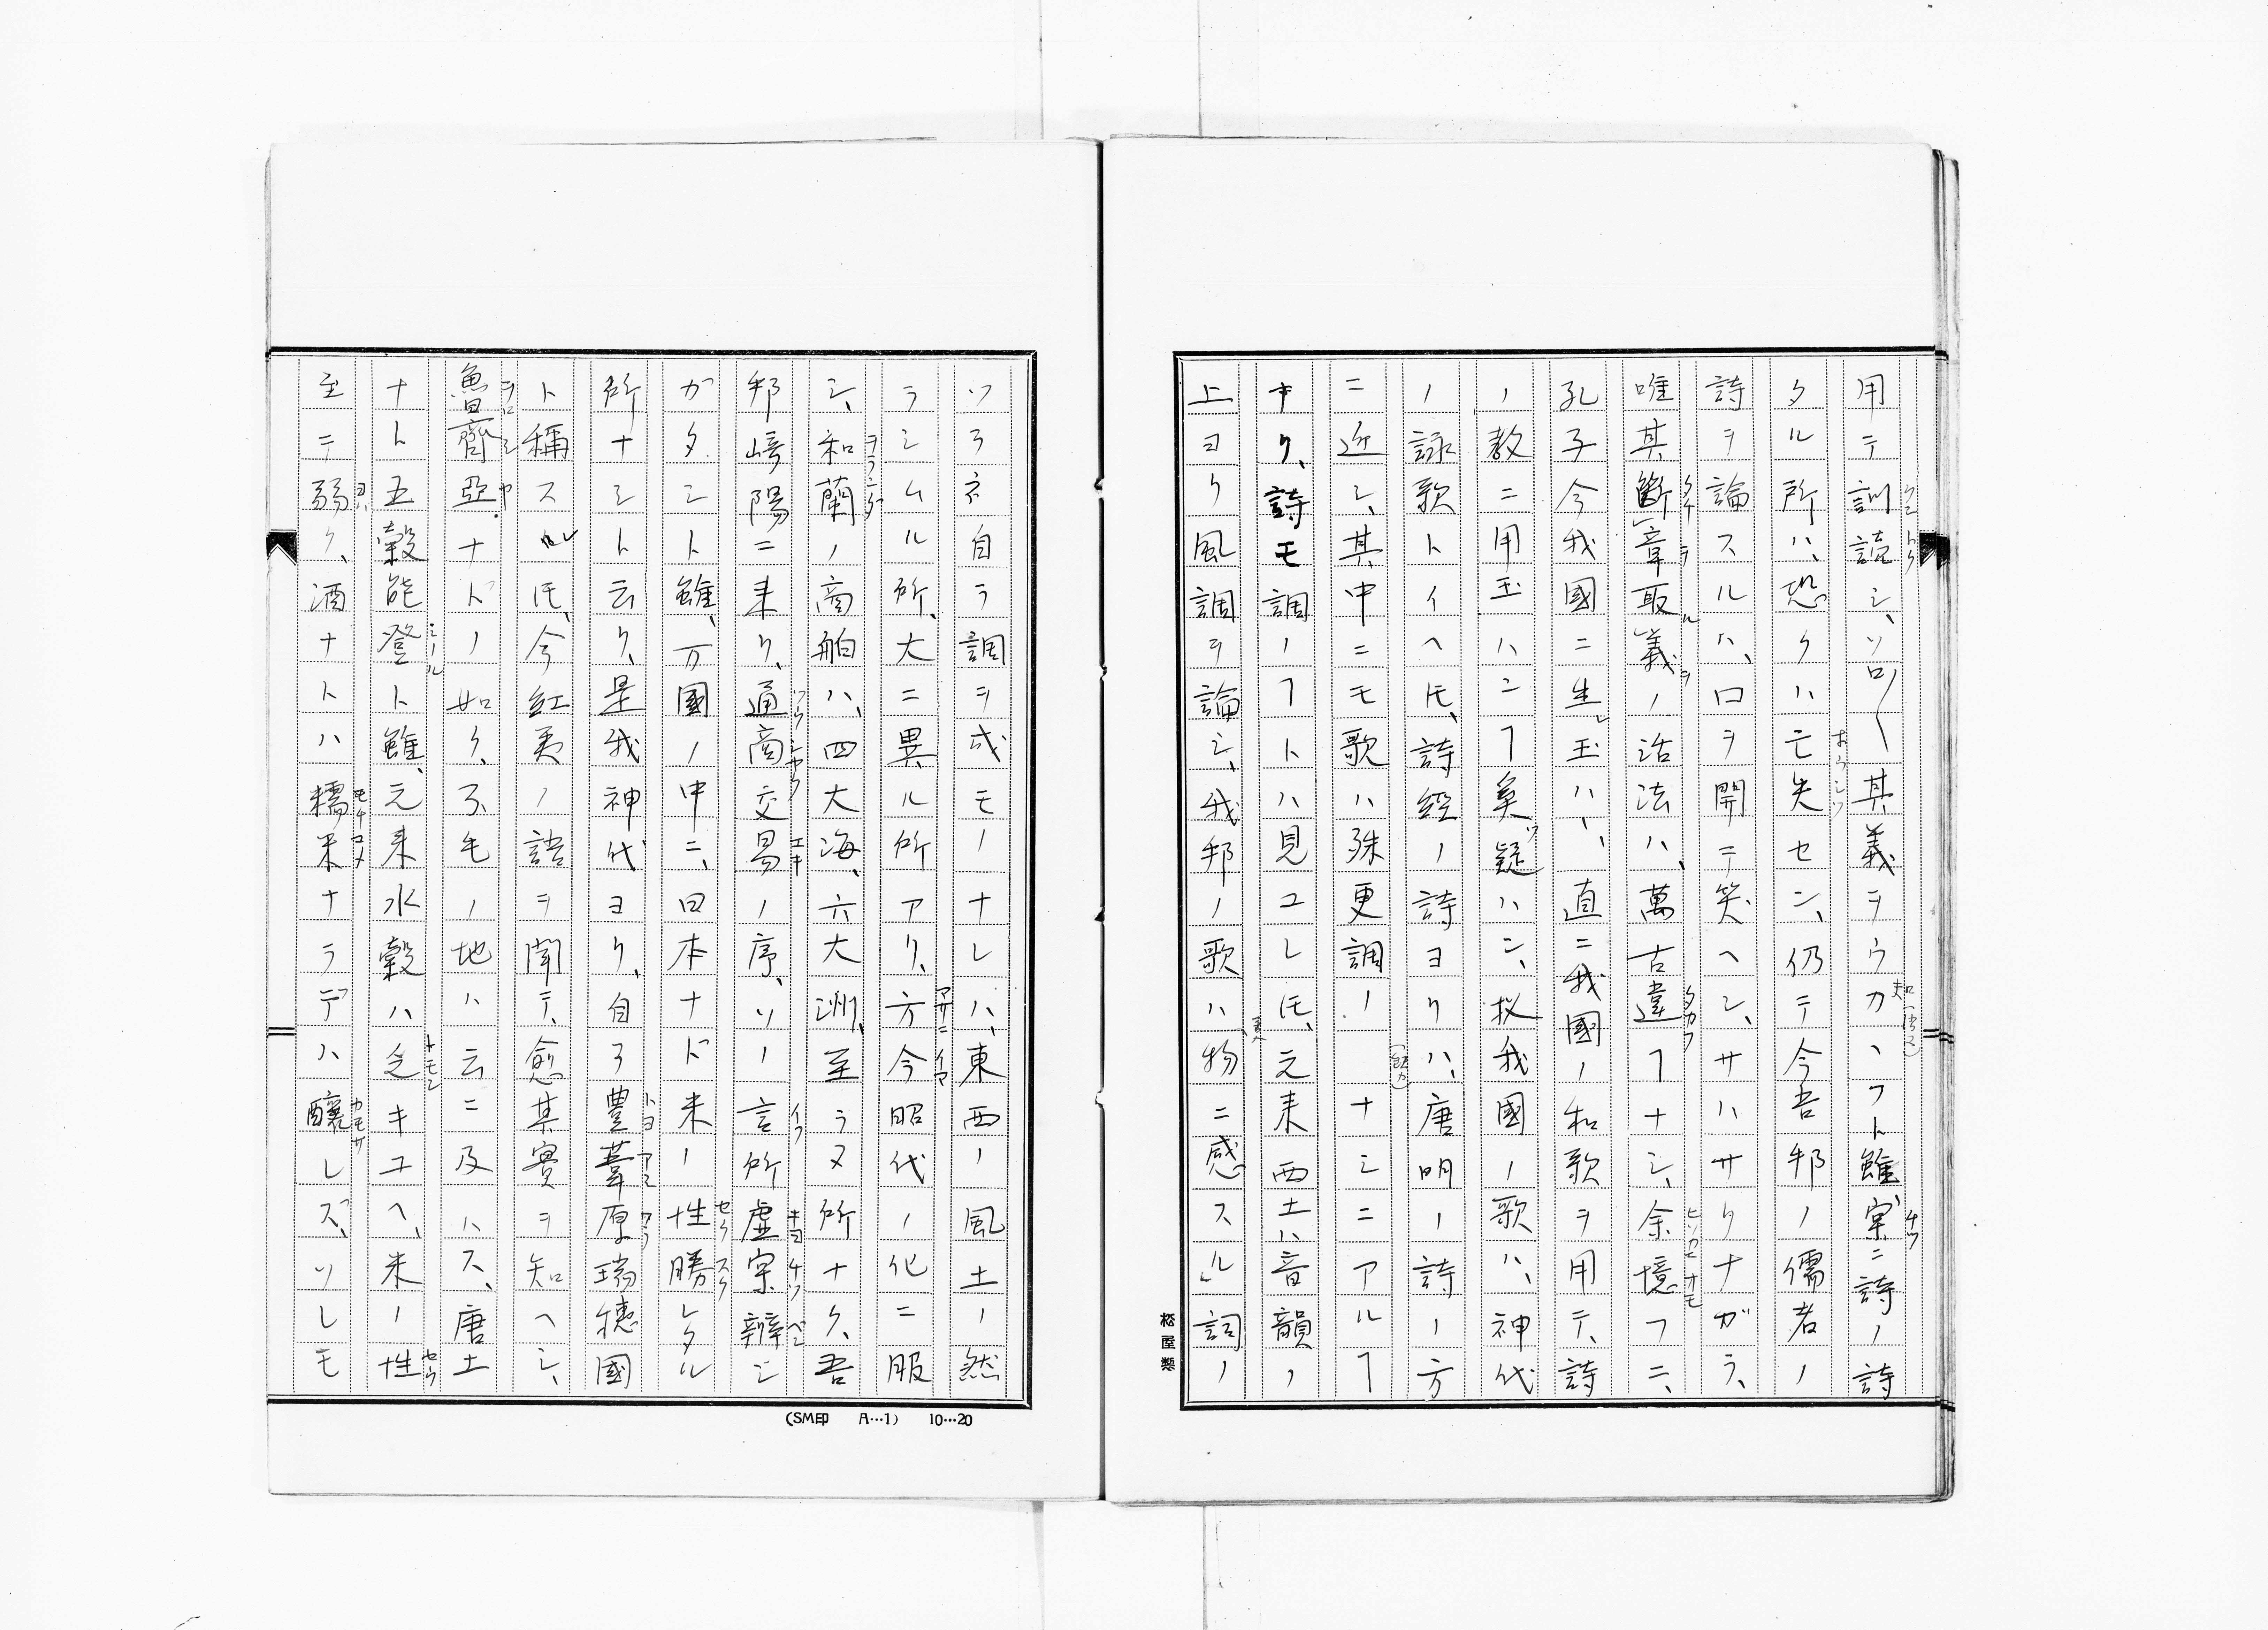 用テ訓読シ、ソロ〱其義ヲウカヽフト雖、実ニ詩ノ詩
タル所ハ、恐クハ亡失セン、仍テ今吾邦ノ儒者ノ
詩ヲ論スルハ、口ヲ開テ笑ヘシ、サハサリナガラ、
唯其斷章取義ノ活法ハ、萬古違フヿナシ、余憶フニ、
孔子今我國ニ生レ玉ハヽ、直ニ我國ノ和歌ヲ用テ、詩
ノ教ニ用玉ハンヿ奠疑ハン、扨我國ノ歌ハ、神代
ノ詠歌トイヘ𪜈、詩経ノ詩ヨリハ、唐明ノ詩ノ方
ニ近シ、其中ニモ歌ハ殊更調ノ ナシニアルヿ
キク、詩モ調ノヿトハ見ユレ𪜈、元来西土ハ音韻ノ
上ヨリ風調ヲ論シ、我邦ノ歌ハ物ニ感スル詞ノ
ツラネ自ラ調ヲ成モノナレハ、東西ノ風土ノ然
ラシムル所、大ニ異ル所アリ、方今昭代ノ化ニ服
シ、和蘭ノ商舶ハ、四大海、六大洲、至ラヌ所ナク、吾
邦崎陽ニ来リ、通商交易ノ序、ソノ言所虚実辨シ
ガタシト雖、万國ノ中ニ、日本ナド米ノ性勝レタル
所ナシト云リ、是我神代ヨリ、自ラ豊葦原瑞穂國
ト稱スレ𪜈、今紅夷ノ語ヲ聞テ、愈其實ヲ知ヘシ、
魯齊亞ナドノ如ク、不毛ノ地ハ云ニ及ハス、唐土
ナト五穀能登ト雖、元来水穀ハ乏キユヘ、米ノ性
至テ弱ク、酒ナトハ糯米ナラデハ醸レズ、ソレモ
松屋製
(SM印 A…1) 10…20